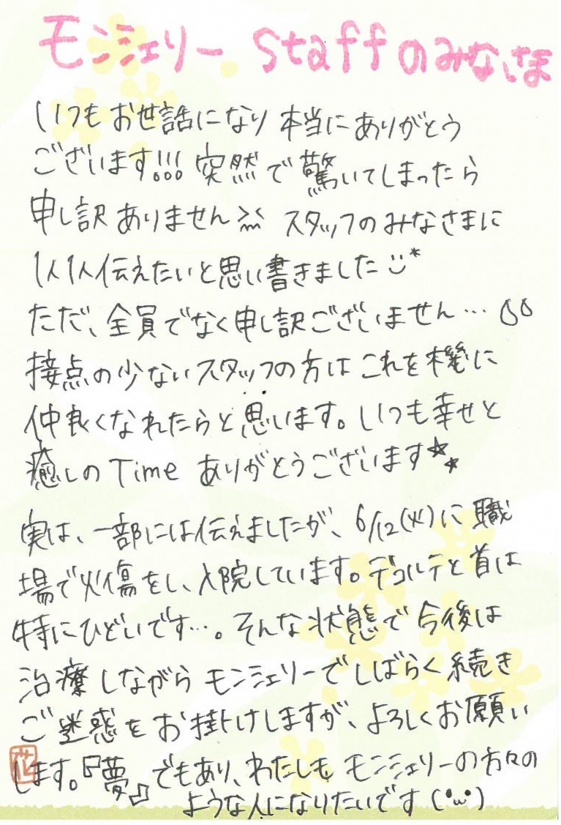 モンシェリー staffのみなさま
いつもお世話になり 本当にありがとう
ございます!!! 突然で驚いてしまったら
申し訳ありません スタッフのみなさまに
1人1人伝えたいと思い書きました
ただ、全員でなく申し訳ございません…
接点の少ないスタッフの方は これを機に
仲良くなれたらと思います。いつも幸せと
癒しのTime ありがとうございます☆☆
実は、一部には伝えましたが、6/12(火)に職
場で火傷をし、入院しています。デコルテと首は
特にひどいです…。そんな状態で今後は
治療しながら モンシェリーでしばらく続き
ご迷惑をお掛けしますが、よろしくお願い
します。『夢』でもあり、わたしも モンシェリーの方々の
ような人になりたいです(・ω・)